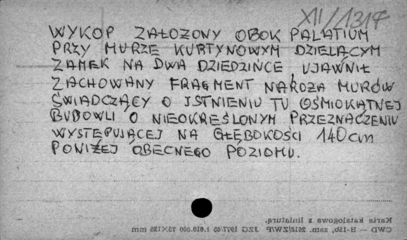 XII/1317
WYKOP ZAŁOŻONY OBOK PALATIUM
PRZY MURZE KURTYNOWYM DZIELĄCYM
ZAMEK NA DWA DZIEDZIŃCE UJAWNIŁ
ZACHOWANY FRAGMENT NAROŻA MURÓW
ŚWIADCZĄCY O ISTNIENIU TU OŚMIOKĄTNEJ
BUDOWLI O NIEOKREŚLONYM PRZEZNACZENIU
WYSTĘPUJĄCEJ NA GŁĘBOKOŚCI 140 cm
PONIŻEJ OBECNEGO POZIOMU.
Karta katalogowa z liniaturą.